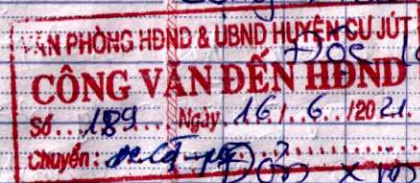 VĂN PHÒNG HĐND & UBND HUYỆN CƯ JÚT
CÔNG VĂN ĐẾN HĐND
Số...189... Ngày.16./..6../2021.
Chuyển: